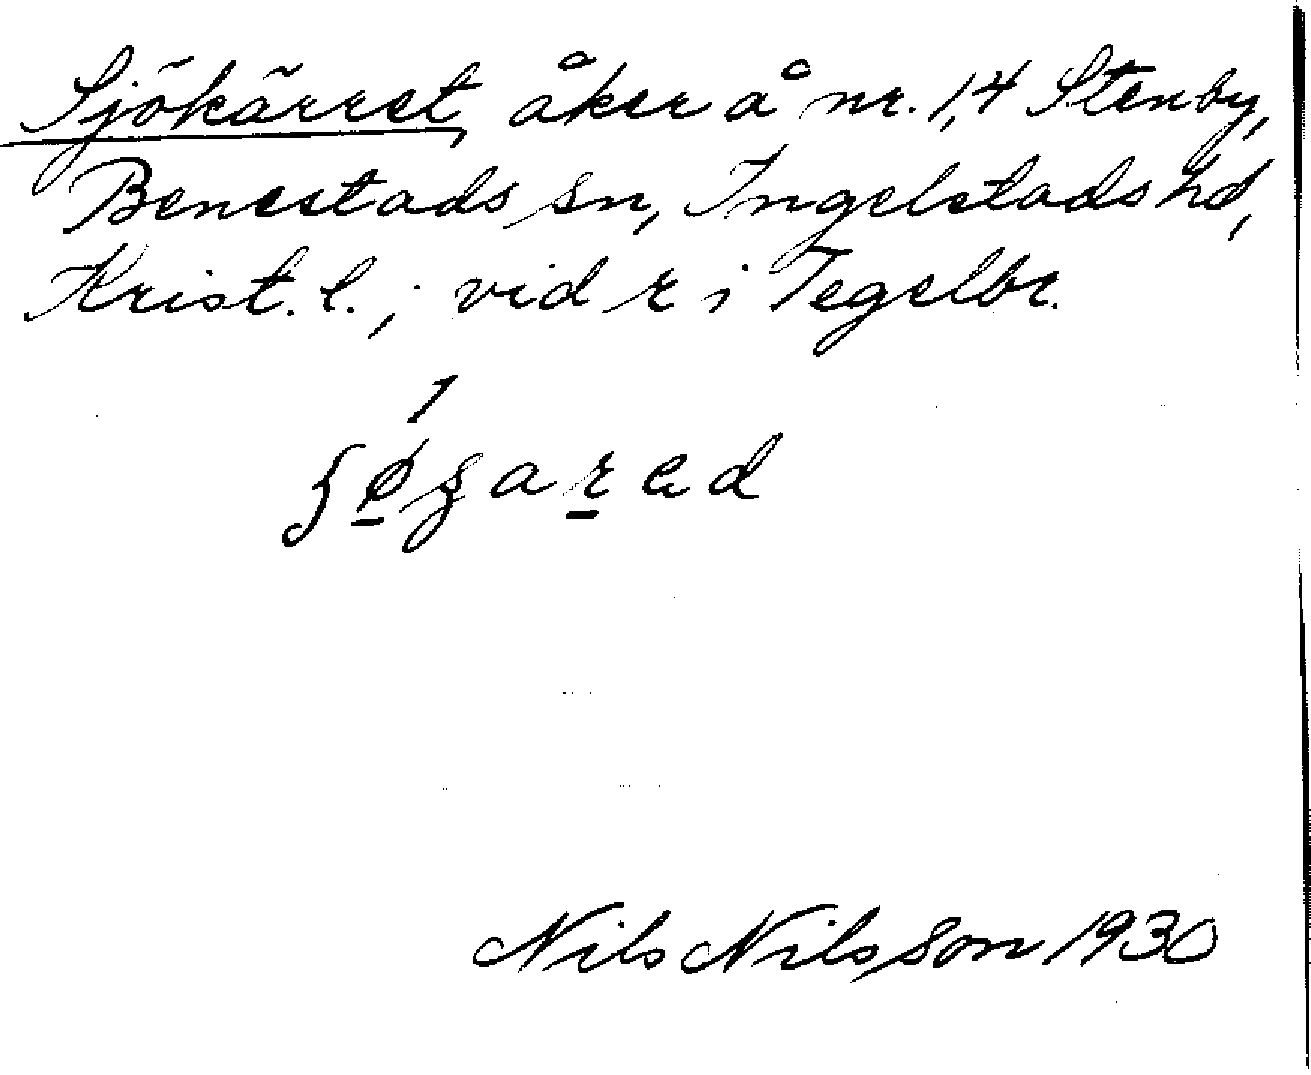 Sjökärret, åker å nr. 1,4 Stenby,
Benestads sn, Ingelstads hd,
Krist. l.; vid r i Tegelbr.
Nils Nilsson 1930